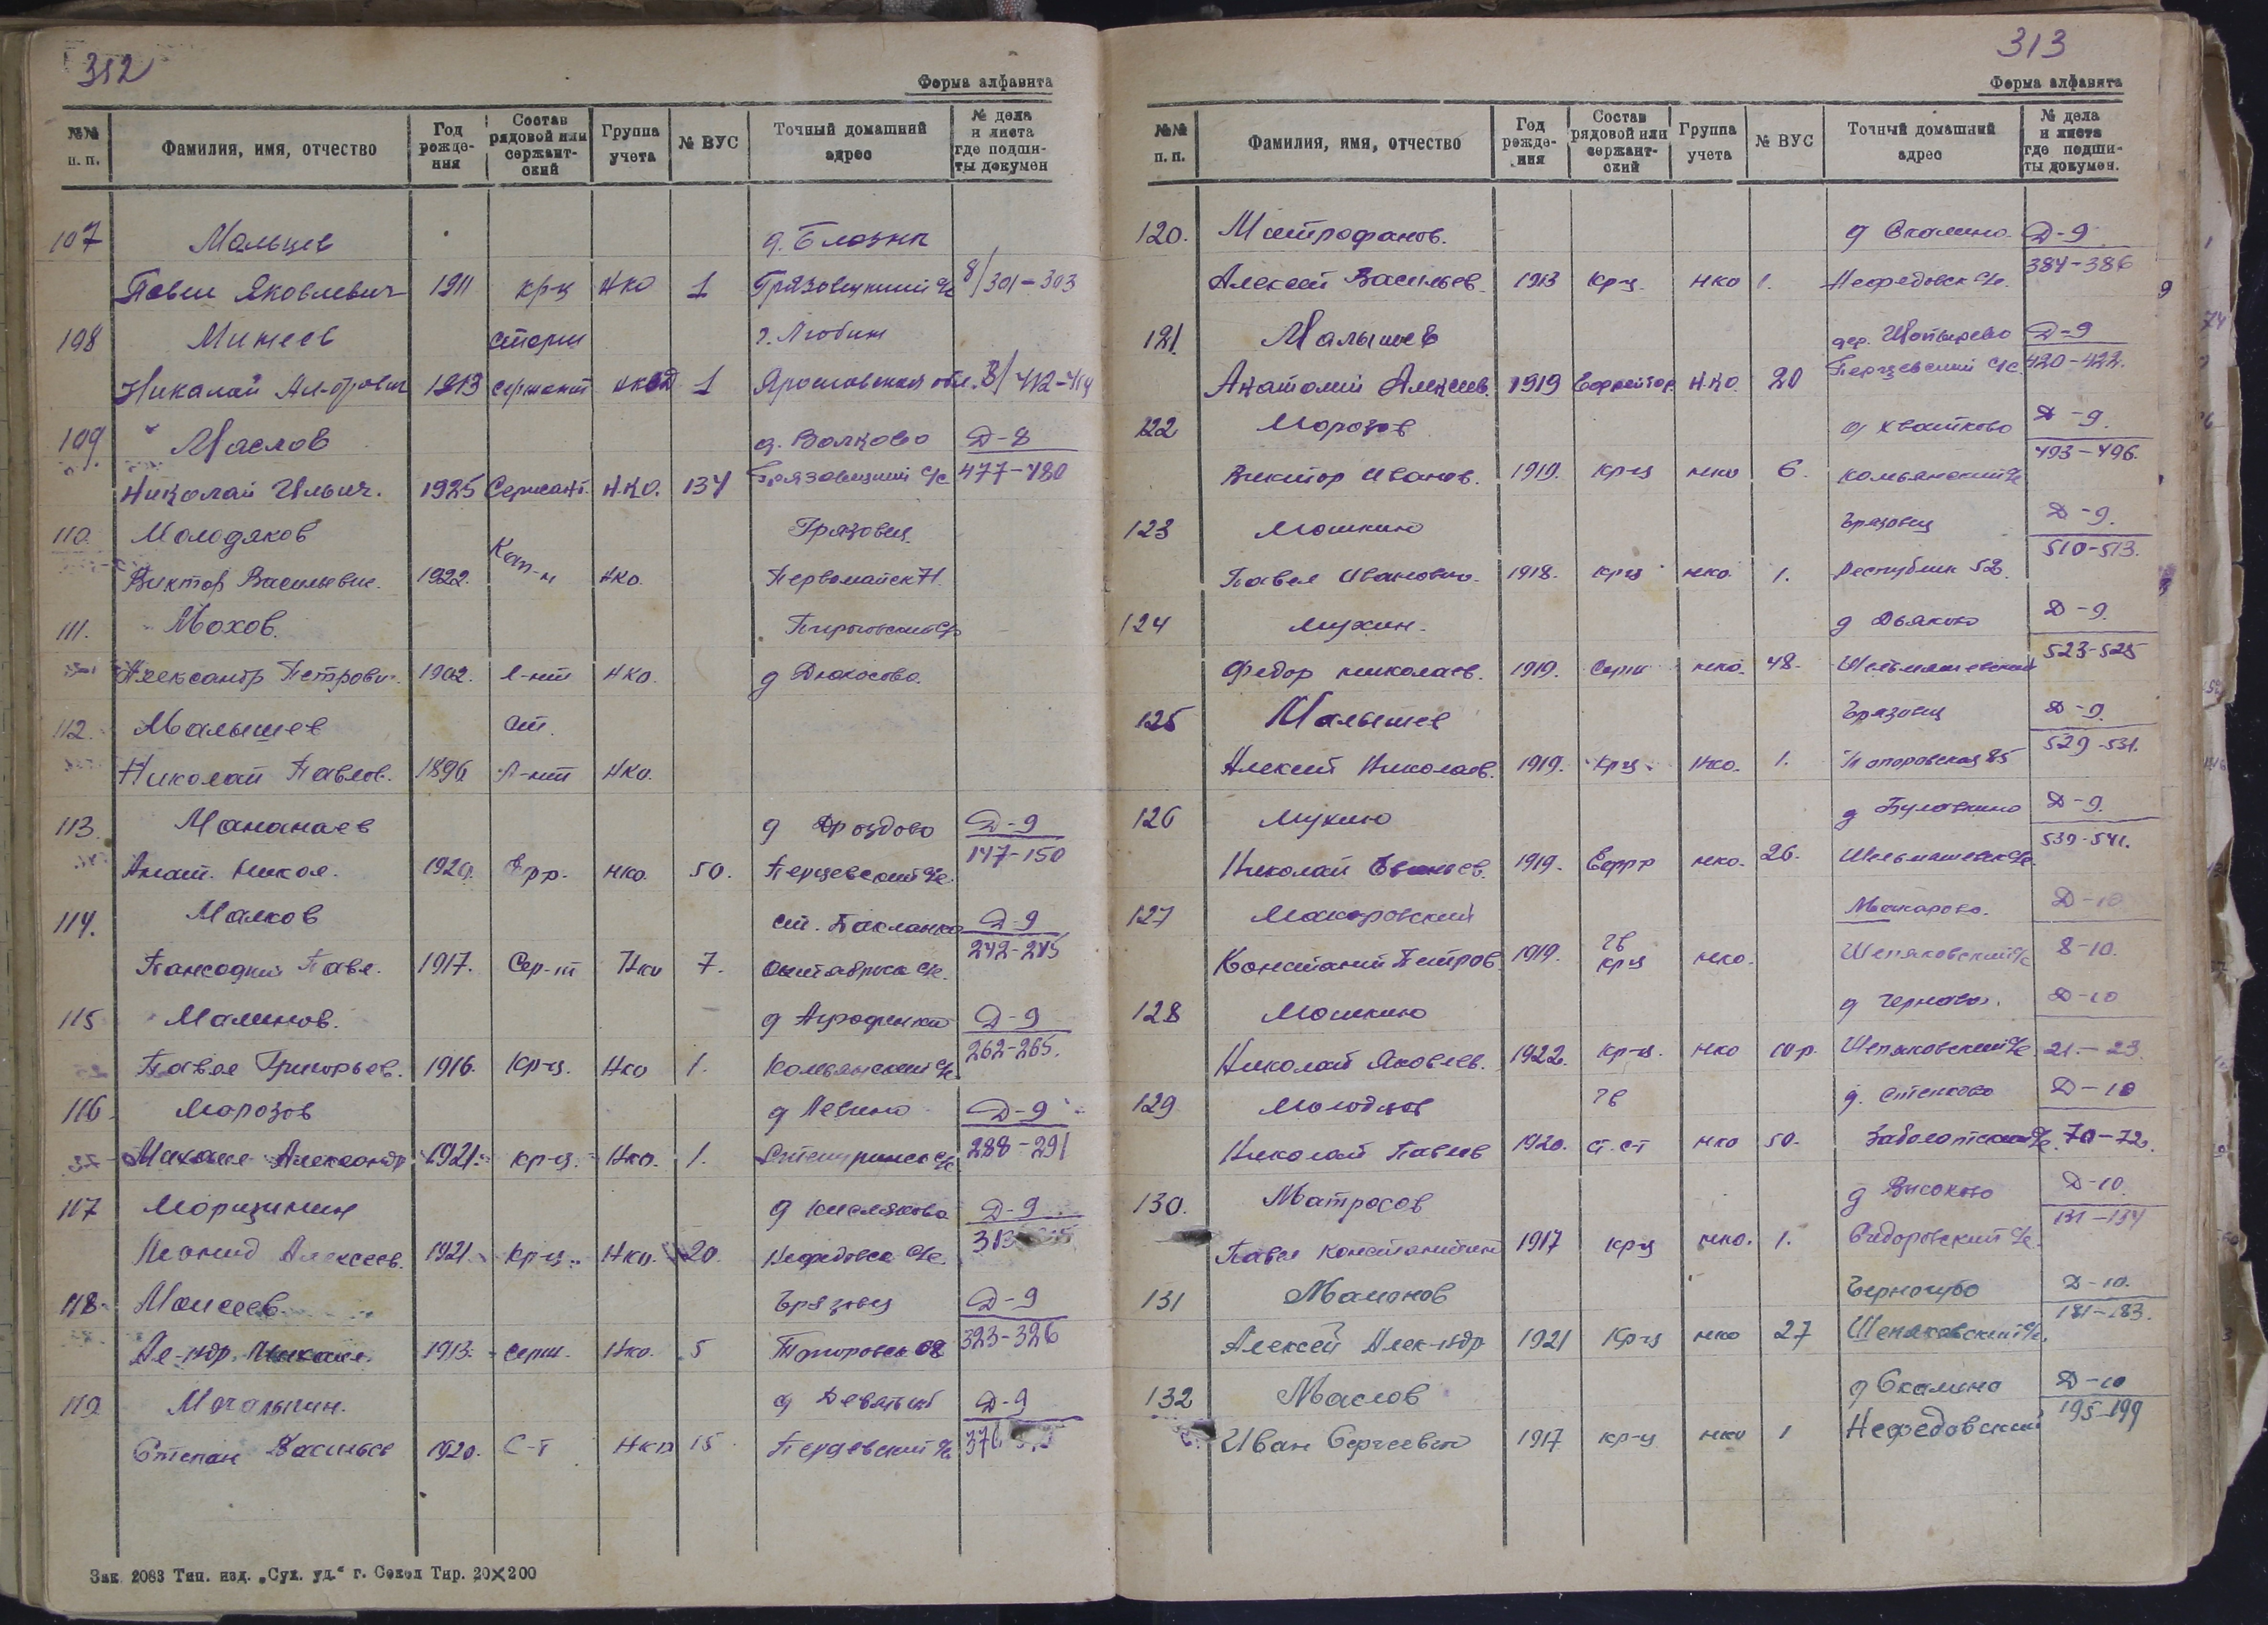 312
Форма алфавита
№№ п. п. Фамилия, имя, отчество Год рожде-ния Состав рядовой или сержант-ский Группа учета № ВУС Точный домашний адрес № дела и листа где подши-ты докумен
107 Мальцев
Павел Яковлевич 1911 кр-ц НКО 1 Грязовецкий с/с 8/301-303
108 Михеев старш г. Любим
Николай 1913 сержант 1 Ярославская обл. 8/412-414
109 Маслов д. Волково Д-8
Николай Ильич. 1925 Сержант Н.КО. 134 Грязовецкий с/с 477-480
110. Молодяков Грязовец
Виктор Васильевич. 1922. Кап-н НКО. Первомайск 71.
111. Мохов.
Александр Петрович. 1902. Л-нт НКО. д Дюкосово.
112. Малышев ст.
Николай Павлов. 1896 Л-нт НКО.
113. Мананаев д Дроздово Д-9
Анат. Никол. 1920. Ефр. НКО. 50. Перцевский с/с. 147-150
114. Малков ст. Бакланка Д-9
Павл. 1917. Сер-т НКО 7. 242-245
115 Малинов. Д-9
Павел Григорьев. 1916. Кр-ц. НКО 1. Комьянский с/с 262-265.
116. Морозов д Левино Д-9
Михаил Александр 1921. кр-ц. НКО. 1. 288-291
117 Д-9
Леонид Алексеев. 1921. Кр-ц. НКО. 20. Нефедовск с/с.
118. Моисеев Грязовец Д-9
Ал-ндр. 1913. серж. НКО. 5 323-326
119 Д-9
Степан Васильев 1920. С-т НКО 15 Перцевский с/с.
Зак. 2083 Тип. изд. „Сух. уд.“ г. Сокол Тир. 20×200
313
Форма алфавита
№№ п. п. Фамилия, имя, отчество Год рожде-ния Состав рядовой или сержант-ский Группа учета № ВУС Точный домашний адрес № дела и листа где подши-ты докумен.
120. Митрофанов. д Скалино Д-9
Алексей Васильев. 1913 Кр-ц. НКО 1. Нефедовск с/с. 384-386
121. Малышев дер. Д-9
Анатолий Алексеев. 1919 Ефрейтор. Н.КО. 20 Перцевский с/с 420-422.
122 Морозов д Хвайково Д-9.
Виктор Иванов. 1919. кр-ц НКО 6. Комьянский с/с 493-496.
123 Мошкин Грязовец Д-9.
Павел Иванович. 1918. кр-ц НКО. 1. Республик 52. 510-513.
124 Мухин. д Дьяково Д-9.
Федор Николаев. 1919. Серж НКО. 48. 523-525
125 Малышев Грязовец Д-9.
Алексей Николаев. 1919. Кр-ц. НКО. 1. 529-531.
126 Мукин Д-9.
Николай 1919. Ефр-р НКО. 26. 539-541.
127 Макаровский Макарово. Д-10
Петров. 1919. гв кр-ц НКО. Шепяковский с/с 8-10.
128 Мошкин д Чернево. Д-10
Николай Яковлев. 1922. Кр-ц. НКО Шепяковский с/с 21.-23.
129 гв д. Степково Д-10
Николай Павлов 1920. ст. с-т НКО 50. Заболотский с/с. 70-72.
130. Матросов д Высоково Д-10.
Павел Константин 1917 кр-ц НКО. 1. Сидоровский с/с. 131-134
131 Мамонов Д-10.
Алексей Алек-ндр 1921 Кр-ц НКО 27 Шепяковский с/с. 181-183.
132 Маслов д Скалино Д-10
Иван Сергеевич 1917 кр-ц НКО 1 Нефедовский 195-199